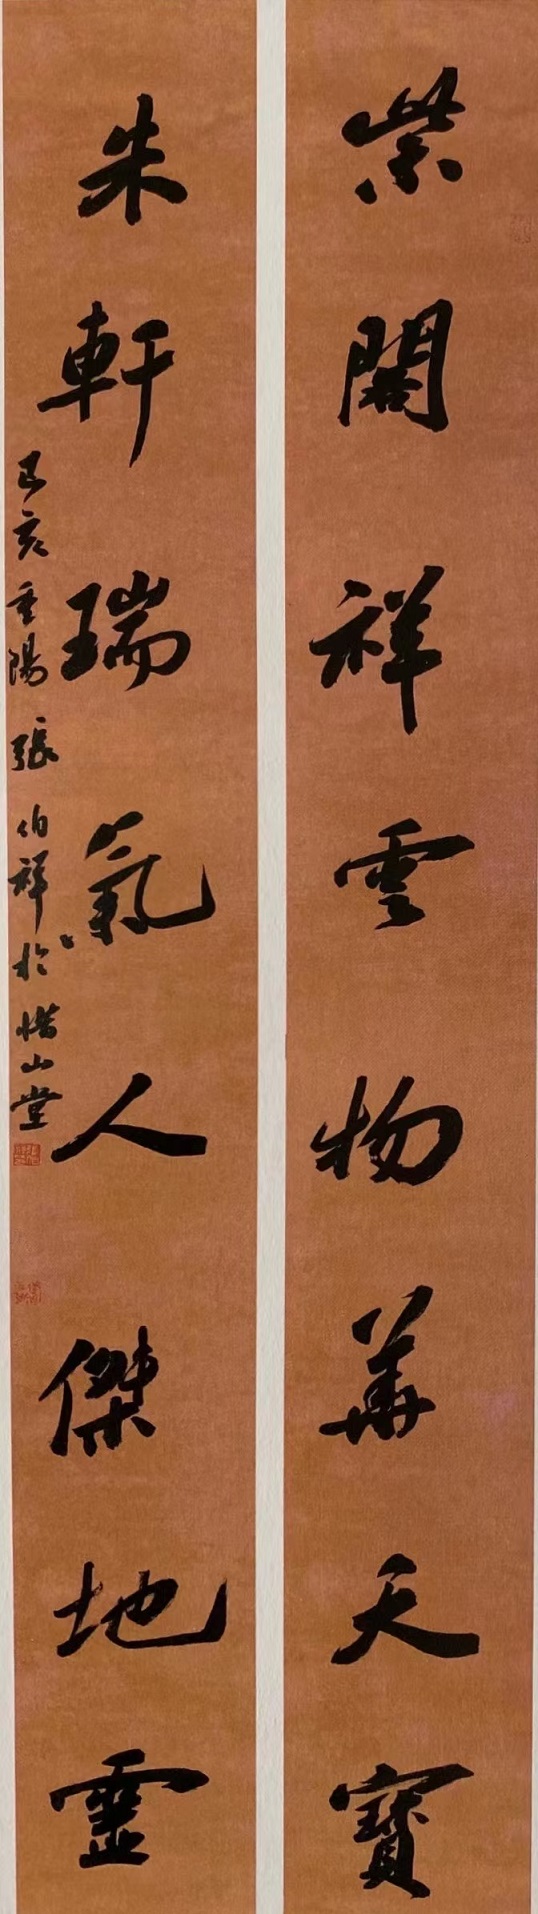 紫閣祥雲物華天寶
朱軒瑞氣人傑地靈
己亥重陽張伯祥於惜山堂